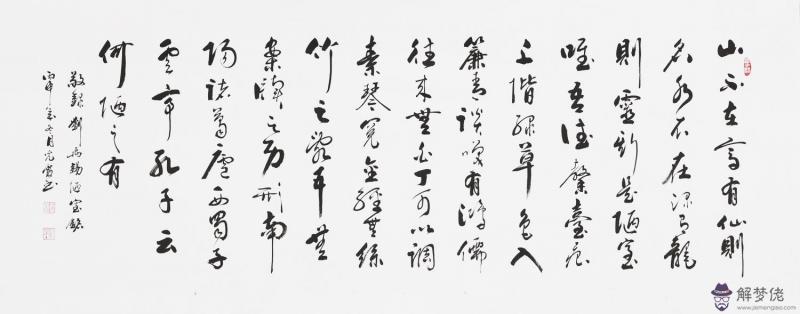 山不在高有仙則
名水不在深有龍
則靈斯是陋室
唯吾德馨臺痕
上階緑草色入
簾青談笑有鴻儒
往来無白丁可以調
素琴閱金經無絲
竹之亂耳無
案牘之勞形南
陽諸葛廬西蜀子
雲亭孔子云
何陋之有
敬録劉禹錫陋室銘
丙申年冬月
解梦佬